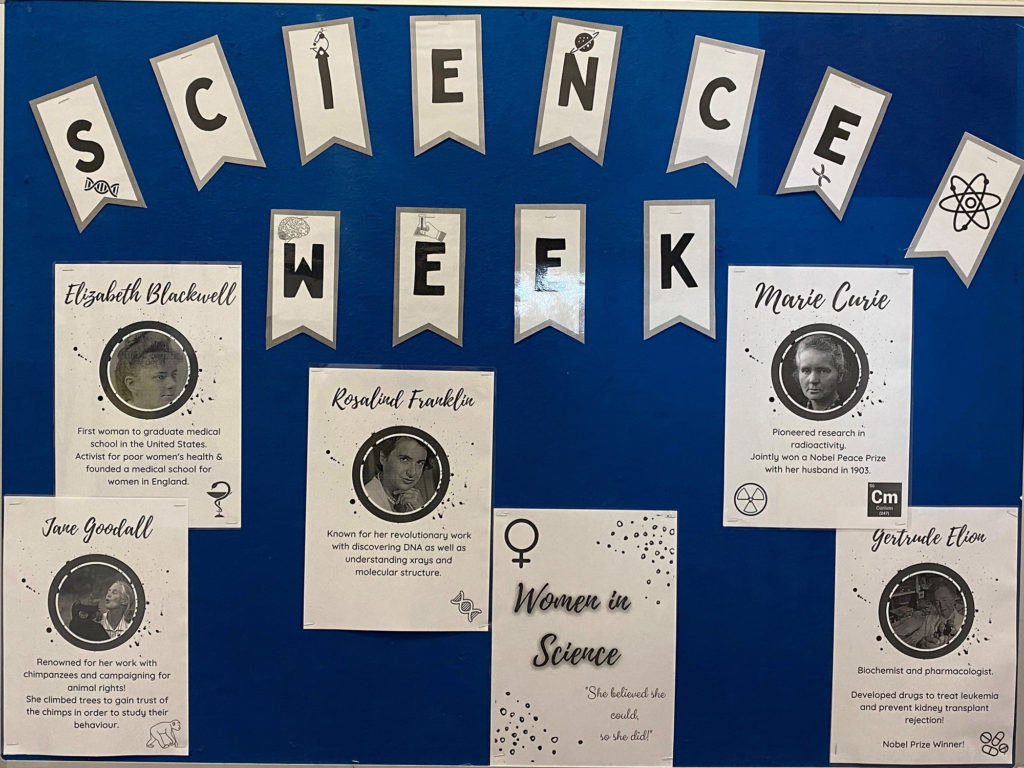 SCIENCE
WEEK
Elizabeth Blackwell
First woman to graduate medical
school in the United States.
Activist for poor women's health &
founded a medical school for
women in England.
Rosalind Franklin
Known for her revolutionary work
with discovering DNA as well as
understanding xrays and
molecular structure.
Marie Curie
Pioneered research in
radioactivity.
Jointly won a Nobel Peace Prize
with her husband in 1903.
96
Cm
Curium
(247)
Jane Goodall
Renowned for her work with
chimpanzees and campaigning for
animal rights!
She climbed trees to gain trust of
the chimps in order to study their
behaviour.
Women in
Science
"She believed she
could,
so she did!"
Gertrude Elion
Biochemist and pharmacologist.
Developed drugs to treat leukemia
and prevent kidney transplant
rejection!
Nobel Prize Winner!